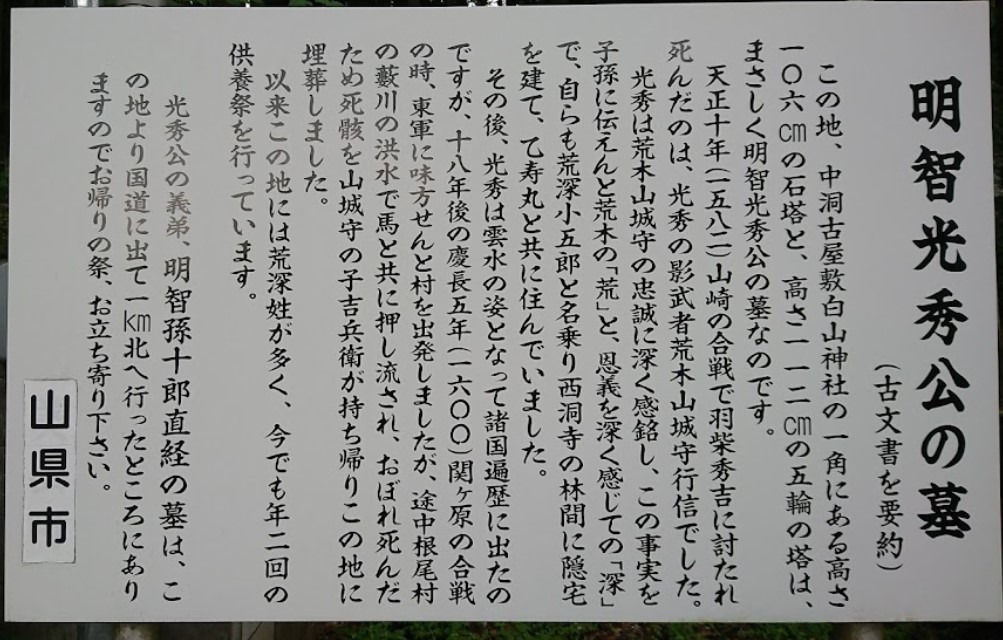 明智光秀公の墓
(古文書を要約)
この地、中洞古屋敷白山神社の一角にある高さ
一〇六cmの石塔と、高さ一一二cmの五輪の塔は、
まさしく明智光秀公の墓なのです。
天正十年(一五八二)山崎の合戦で羽柴秀吉に討たれ
死んだのは、光秀の影武者荒木山城守行信でした。
光秀は荒木山城守の忠誠に深く感銘し、この事実を
子孫に伝えんと荒木の「荒」と、恩義を深く感じての「深」
で、自らも荒深小五郎と名乗り西洞寺の林間に隠宅
を建て、乙寿丸と共に住んでいました。
その後、光秀は雲水の姿となって諸国遍歴に出たの
ですが、十八年後の慶長五年(一六〇〇)関ヶ原の合戦
の時、東軍に味方せんと村を出発しましたが、途中根尾村
の藪川の洪水で馬と共に押し流され、おぼれ死んだ
ため死骸を山城守の子吉兵衛が持ち帰りこの地に
埋葬しました。
以来この地には荒深姓が多く、今でも年二回の
供養祭を行っています。
光秀公の義弟、明智孫十郎直経の墓は、こ
の地より国道に出て一km北へ行ったところにあり
ますのでお帰りの祭、お立ち寄り下さい。
山県市